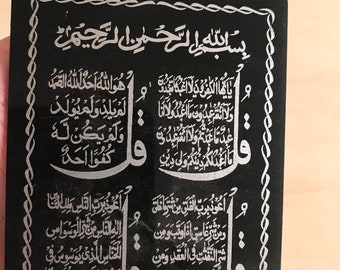 بسم الله الرحمن الرحيم
قل
يا يها الكفرون لا اعبد ما تعبدون
ولا انتم عبدون ما اعبد ولا انا عابد
ما عبدتم ولا انتم عبدون
ما اعبد لكم دينكم ولي دين
قل
هو الله احد الله الصمد
لم يلد ولم يولد
ولم يكن له
كفوا احد
قل
اعوذ برب الفلق من شر ما خلق
ومن شر غاسق اذا وقب ومن
شر النفثت في العقد ومن
قل
اعوذ برب الناس ملك الناس
اله الناس من شر الوسواس
الخناس الذي يوسوس في